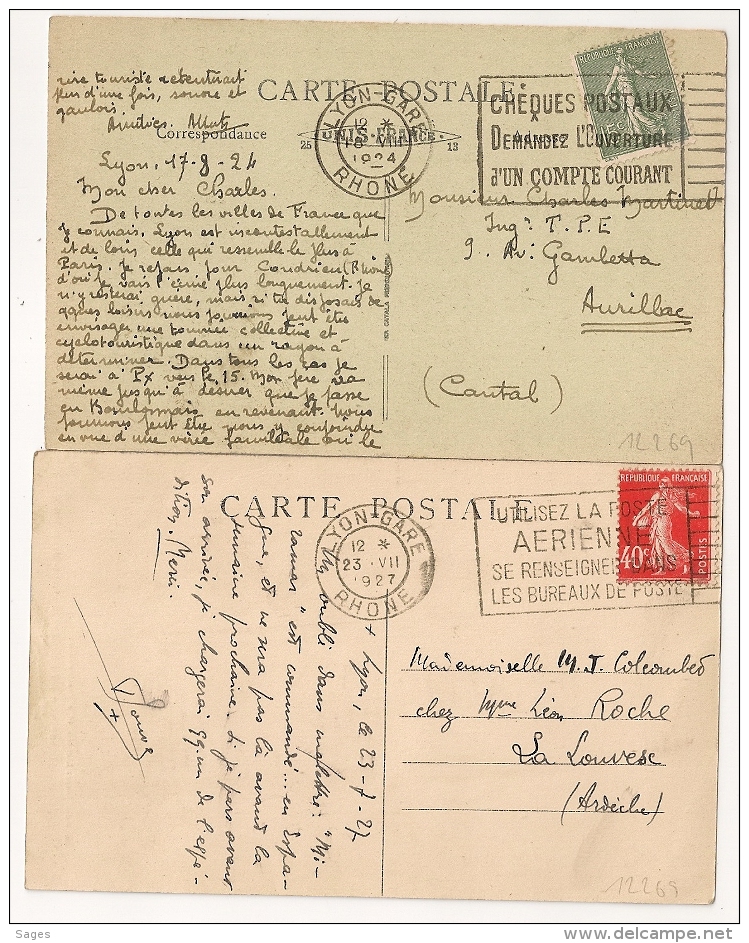 rire touriste retentirait
plus d'une fois, sonore et
gaulois.
Amitiés.
CARTE POSTALE
Correspondance
25 UNIS-FRANCE 13
LYON-GARE
12 *
18 VIII
1924
RHONE
CHÈQUES POSTAUX
DEMANDEZ L'OUVERTURE
d'UN COMPTE COURANT
REPUBLIQUE FRANÇAISE
Lyon, 17-8-24
Mon cher Charles.
De toutes les villes de France que
je connais, Lyon est incontestablement
et de loin celle qui ressemble le plus à
Paris. Je repars pour Condrieu (Rhône)
d'où je vais t'écrire plus longuement. Je
n'y resterai guère, mais si tu disposais de
qques loisirs nous pourrions peut être
envisager une tournée collective et
cyclotouristique dans un rayon à
déterminer. Dans tous les cas je
serai à Px vers le 15. Mon père va
même jusqu'à désirer que je passe
en Bourbonnais en revenant. Nous
pourrions peut être nous y conjoindre
en vue d'une virée familiale où le
Monsieur Charles Martinet
Ingr T.P.E
9. Av. Gambetta
Aurillac
(Cantal)
12269
CARTE POSTALE
LYON-GARE
12 *
23 VII
1927
RHONE
UTILISEZ LA POSTE
AERIENNE
SE RENSEIGNER DANS
LES BUREAUX DE POSTE
REPUBLIQUE FRANÇAISE
40c
POSTES
+ Lyon, le 23-7-27
Un oubli dans ma lettre: "Mi-
ramar" est commandé... en Espa-
gne, et ne sera pas là avant la
semaine prochaine. Si je pars avant
son arrivée, je chargerai qq.un de l'expé-
dition. Merci.
Mademoiselle M. J. Colcombet
chez Mme Léon Roche
La Louvesc
(Ardèche)
12269
Sages
www.delcampe.net